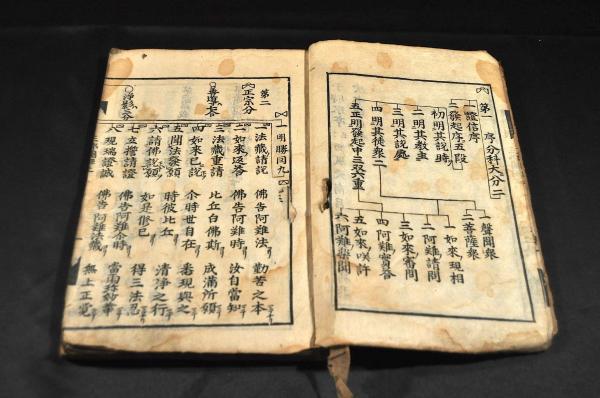 第一 序分科大分二
一證信序
二發起序五段
初明其説時
二明其教主
三明其説處
四明其徒衆二
五正明發起中三又六重
一聲聞衆
二菩薩衆
一如來現相
二阿難請問
三如來審問
四阿難實答
五如來嘆許
六阿難樂聞
第二
正宗分
善導云
淨影云
一明勝因九
一法藏請説 佛告阿難法 勤苦之本
二如來返答 佛告阿難時 汝自當知
三法藏重請 比丘白佛 成滿所願
四如來已説 尒時世自在 悉現與之
五聞法發願 時彼比丘 清淨之行
六請佛説願 如是修已 得三法忍
七立誓請證 佛告阿難尒時 當雨妙華
八現瑞證誠 佛告阿難法藏 無上正覺